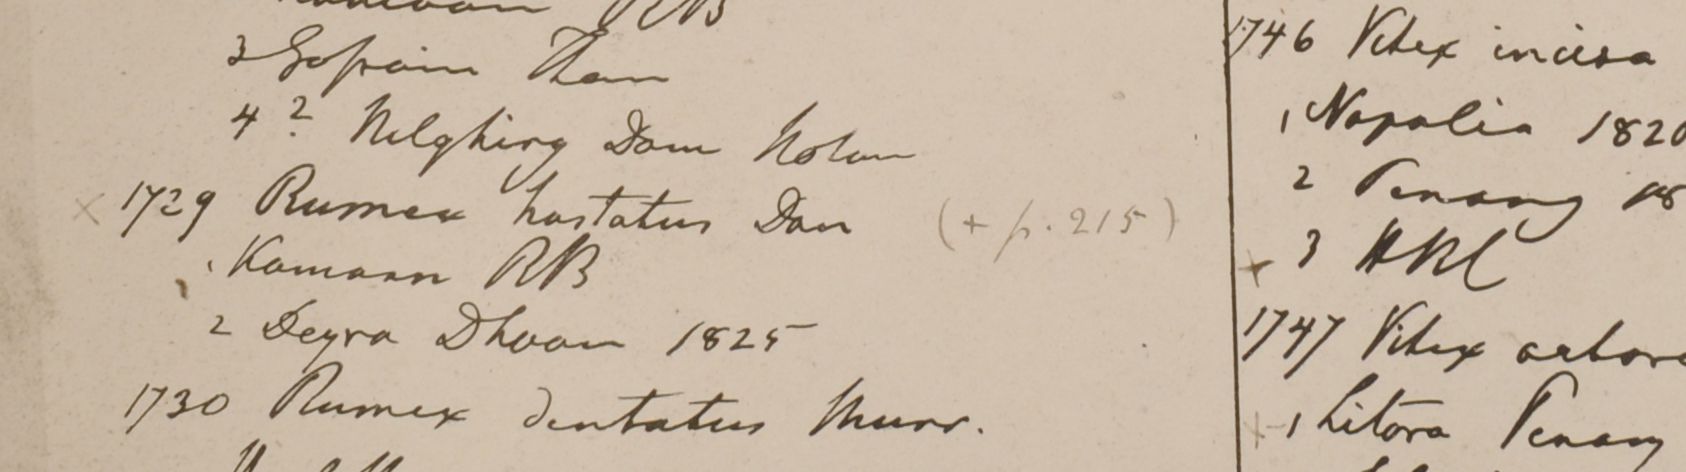 RB
3 Gossain Than
4? Nilghiry Dom Noton
× 1729 Rumex hastatus Don (+ p. 215)
1 Kamaon RB
2 Deyra Dhoon 1825
1730 Rumex dentatus Murr.
1746 Vitex incisa
1, Napalia 1820
2 Penang 18
× 3 HBC
1747 Vitex arbore
× 1, Litora Penang